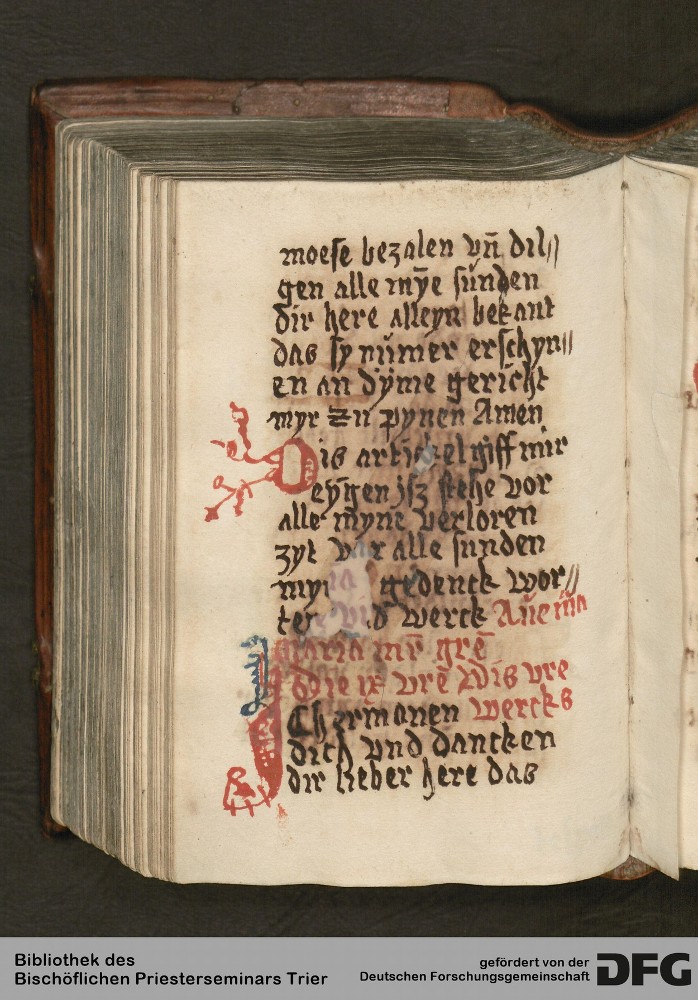 moese bezalen vn̄ dil⸗
gen alle mȳe sunden
dir here alleyn bekant
das sy nūmer erschyn⸗
en an dyme gericht
myr zu pynen Amen
Dis artickel giff mir
eygen jsz stehe vor
alle myne verloren
zyt vor alle sunden
gedenck wor⸗
werck Aūe mīa
maria mȳ grē
Die ix vre dis vre
Ich ermanen wercks
dich vnd dancken
dir lieber here das
Bibliothek des
Bischöflichen Priesterseminars Trier
gefördert von der
Deutschen Forschungsgemeinschaft
DFG